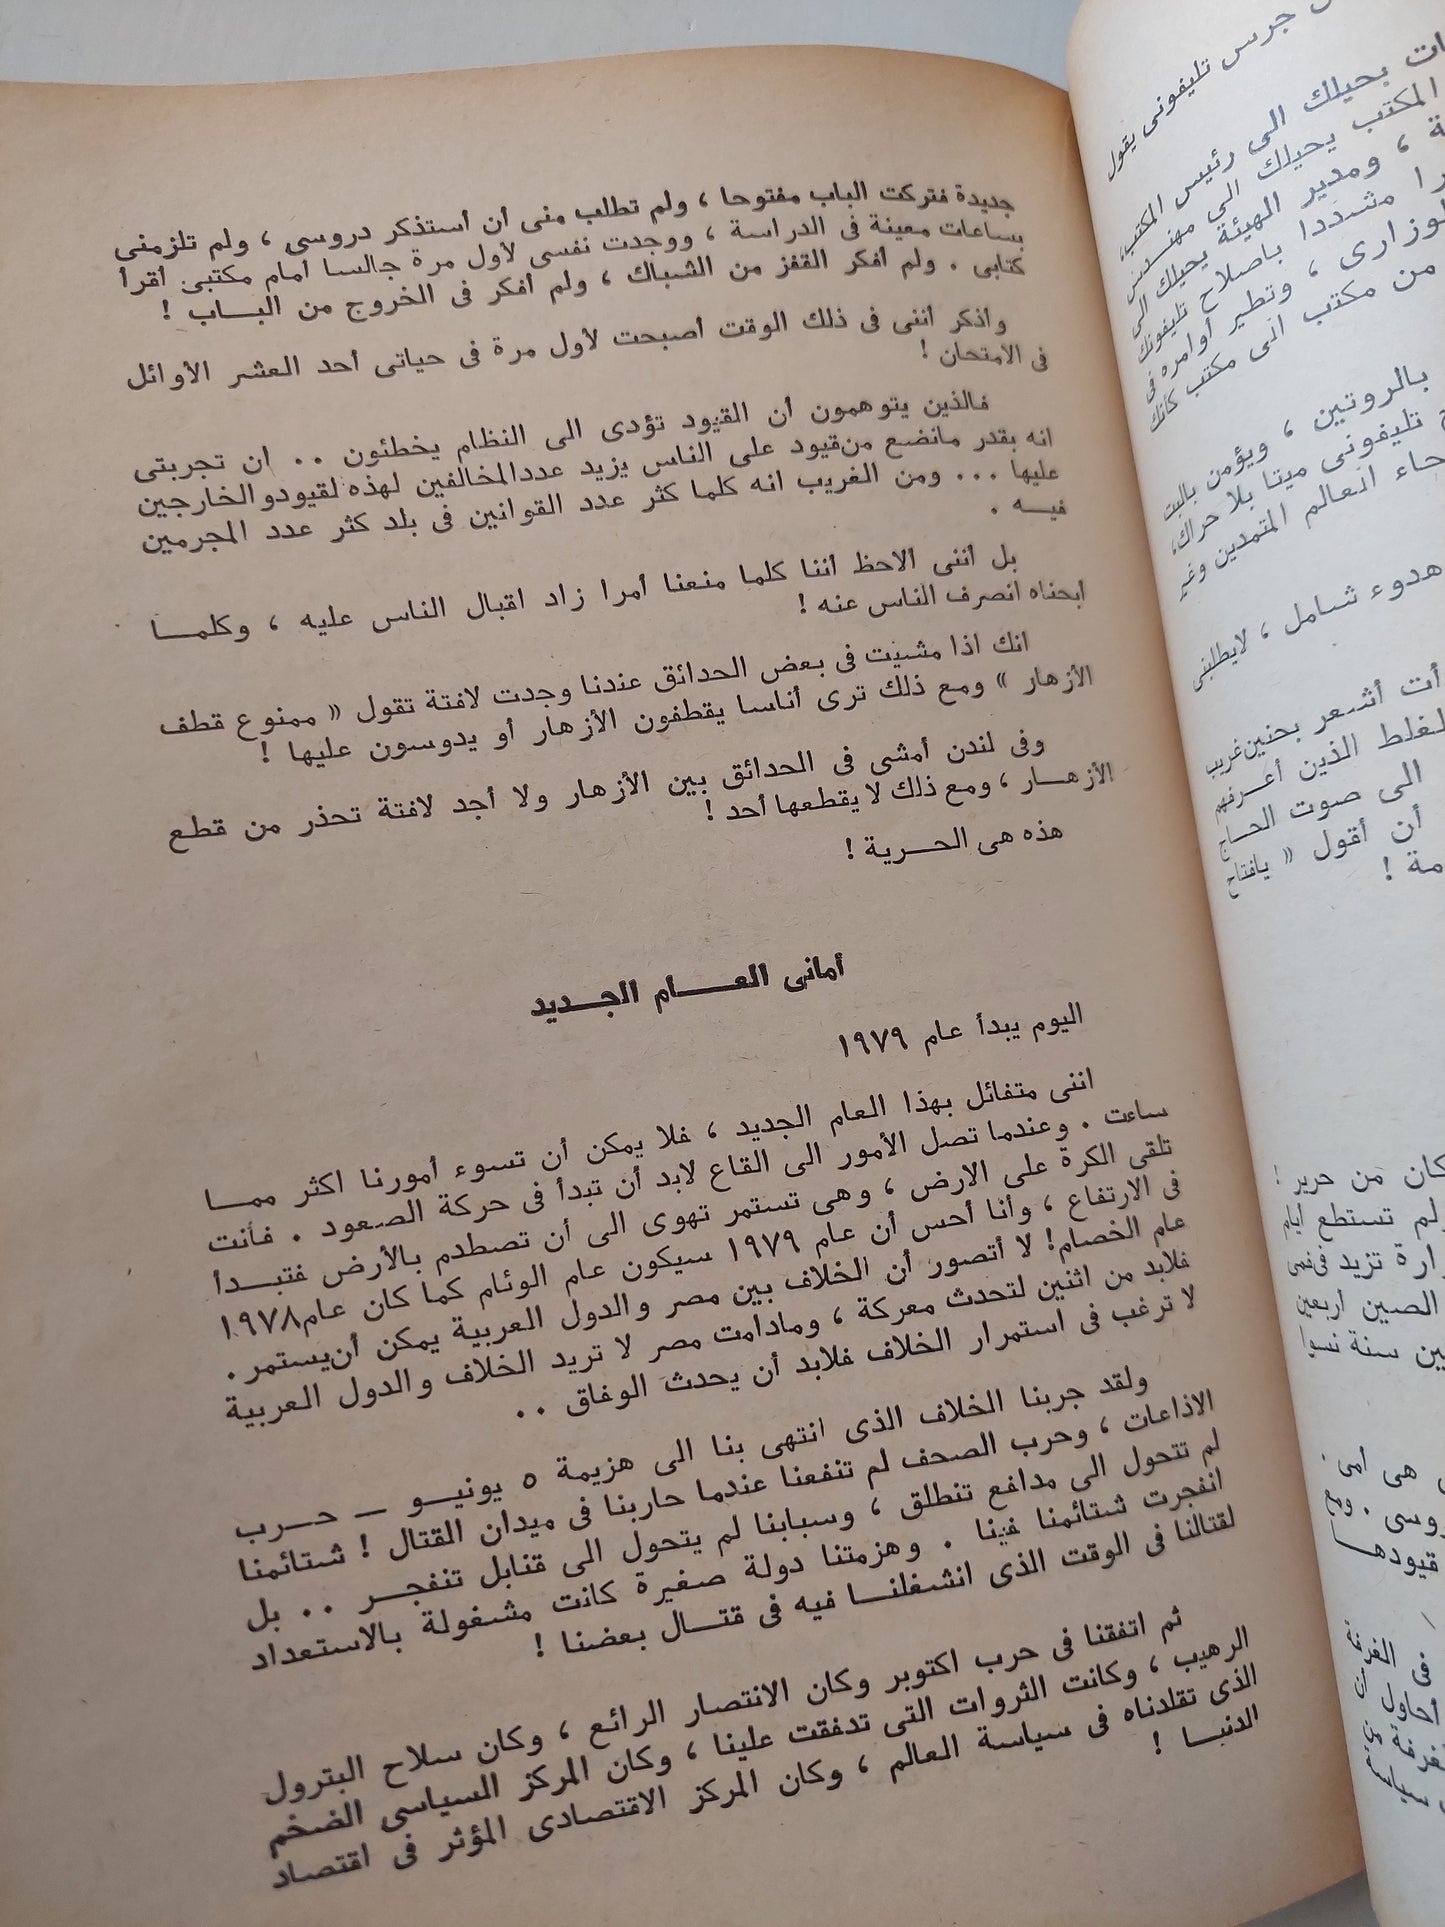 جديدة فتركت الباب مفتوحا ، ولم تطلب منى أن أستذكر دروسى ، ولم تلزمنى
بساعات معينة فى الدراسة ، ووجدت نفسى لأول مرة جالسا أمام مكتبى أقرأ
كتابى . ولم أفكر القفز من الشباك ، ولم أفكر فى الخروج من البــاب !
وأذكر أننى فى ذلك الوقت أصبحت لأول مرة فى حياتى أحد العشر الأوائل
فى الامتحان !
فالذين يتوهمون أن القيود تؤدى الى النظام يخطئون .. ان تجربتى
انه بقدر مانضع من قيود على الناس يزيد عدد المخالفين لهذه لقيودو الخارجين
عليها ... ومن الغريب انه كلما كثر عدد القوانين فى بلد كثر عدد المجرمين
فيـــه .
بل أننى ألاحظ أننا كلما منعنا أمرا زاد اقبال الناس عليه ، وكلمـــا
ابحناه انصرف الناس عنه !
انك اذا مشيت فى بعض الحدائق عندنا وجدت لافتة تقول « ممنوع قطف
الأزهار » ومع ذلك ترى أناسا يقطفون الأزهار أو يدوسون عليها !
وفى لندن أمشى فى الحدائق بين الأزهار ولا أجد لافتة تحذر من قطع
الأزهـــار ، ومع ذلك لا يقطعها أحد !
هذه هى الحـــرية !
أمانى العـــــام الجـــديد
اليوم يبدأ عام ١٩٧٩
اننى متفائل بهذا العام الجديد ، فلا يمكن أن تسوء أمورنا اكثر ممــا
ساءت . وعندما تصل الأمور الى القاع لابد أن تبدأ فى حركة الصعود . فأنت
تلقى الكرة على الارض ، وهى تستمر تهوى الى أن تصطدم بالأرض فتبــدأ
فى الارتفاع ، وأنا أحس أن عام ١٩٧٩ سيكون عام الوئام كما كان عام ١٩٧٨
عام الخصام! لا أتصور أن الخلاف بين مصر والدول العربية يمكن أن يستمر .
فلابد من اثنين لتحدث معركة ، ومادامت مصر لا تريد الخلاف والدول العربية
لا ترغب فى استمرار الخلاف فلابد أن يحدث الوفاق ..
ولقد جربنا الخلاف الذى انتهى بنا الى هزيمة ٥ يونيــو — حــرب
الاذاعات ، وحرب الصحف لم تنفعنا عندما حاربنا فى ميدان القتال ! شتائمنا
لم تتحول الى مدافع تنطلق ، وسبابنا لم يتحول الى قنابل تنفجــر .. بل
انفجرت شتائمنا فينا . وهزمتنا دولة صغيرة كانت مشغولة بالاستعداد
لقتالنا فى الوقت الذى انشغلنــا فيه فى قتــال بعضنا !
ثم اتفقنا فى حرب اكتوبر وكان الانتصار الرائع ، وكان سلاح البترول
الرهيب ، وكانت الثروات التى تدفقت علينا ، وكان المركز السياسى الضخم
الذى تقلدناه فى سياسة العالم ، وكان المركز الاقتصادى المؤثر فى اقتصاد
الدنيــا !
جرس تليفونى يقول
بحيلك الى رئيس المكتب،
المكتب يحيلك الى مهندس
ة ، ومدير الهيئة يحيلك الى
را مشددا باصلاح تليفونك
لوزارى ، وتطير أوامره فى
من مكتب الى مكتب كأنك
بالروتين ، ويؤمن بالبت
تليفونى ميتا بلا حراك،
حاء العالم المتمدين وغير
هدوء شامل ، لايطلبنى
أت أشعر بحنين غريب
لغلط الذين أعرفهم
الى صوت الحاج
أن أقول « يافتاح
مة !
كان من حرير !
لم تستطع ايام
ارة تزيد فى
الصين اربعين
ين سنة نسوا
هى امى .
روسى . ومع
قيودهــا
فى الغرفة
أحاول ان